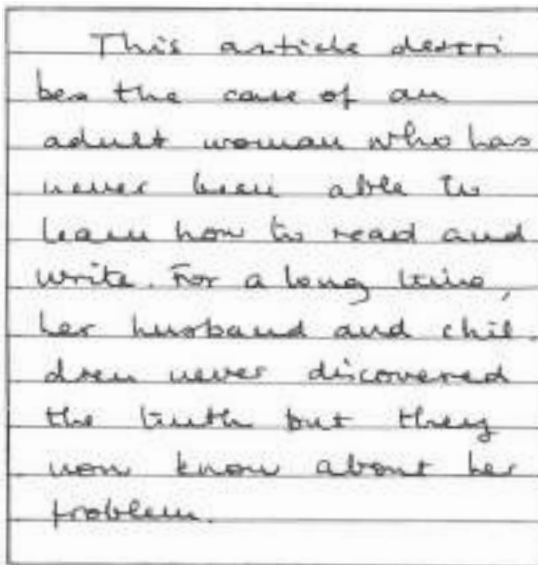 This article descri
bes the case of an
adult woman who has
never been able to
learn how to read and
write. For a long time,
her husband and chil-
dren never discovered
the truth but they
now know about her
problem.